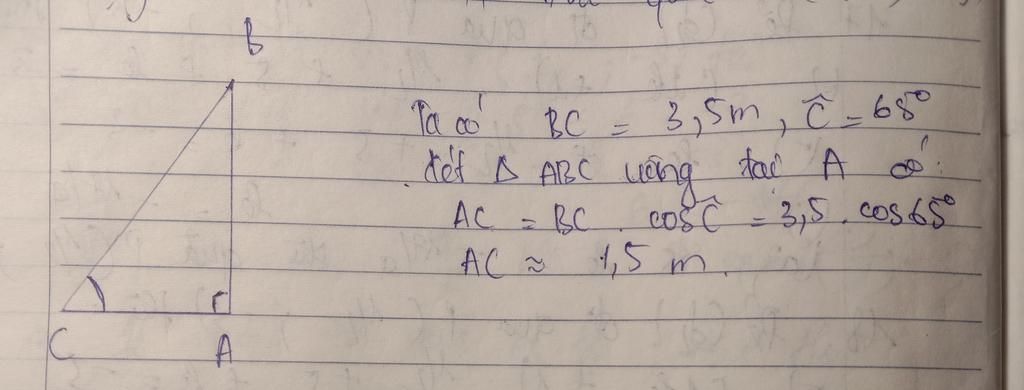 B
Ta có BC = 3,5m, Ĉ = 65°
Xét Δ ABC vuông tại A có:
AC = BC . cosĈ = 3,5 . cos65°
AC ≈ 1,5 m.
C A